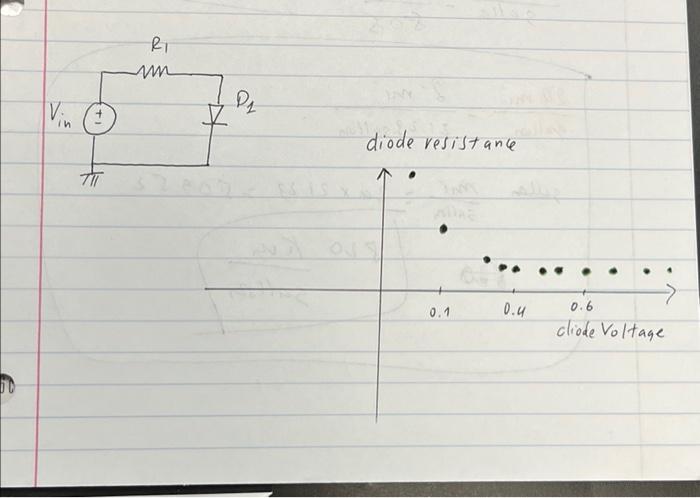 R1
Vin
D1
diode resistance
0.1
0.4
0.6
diode Voltage